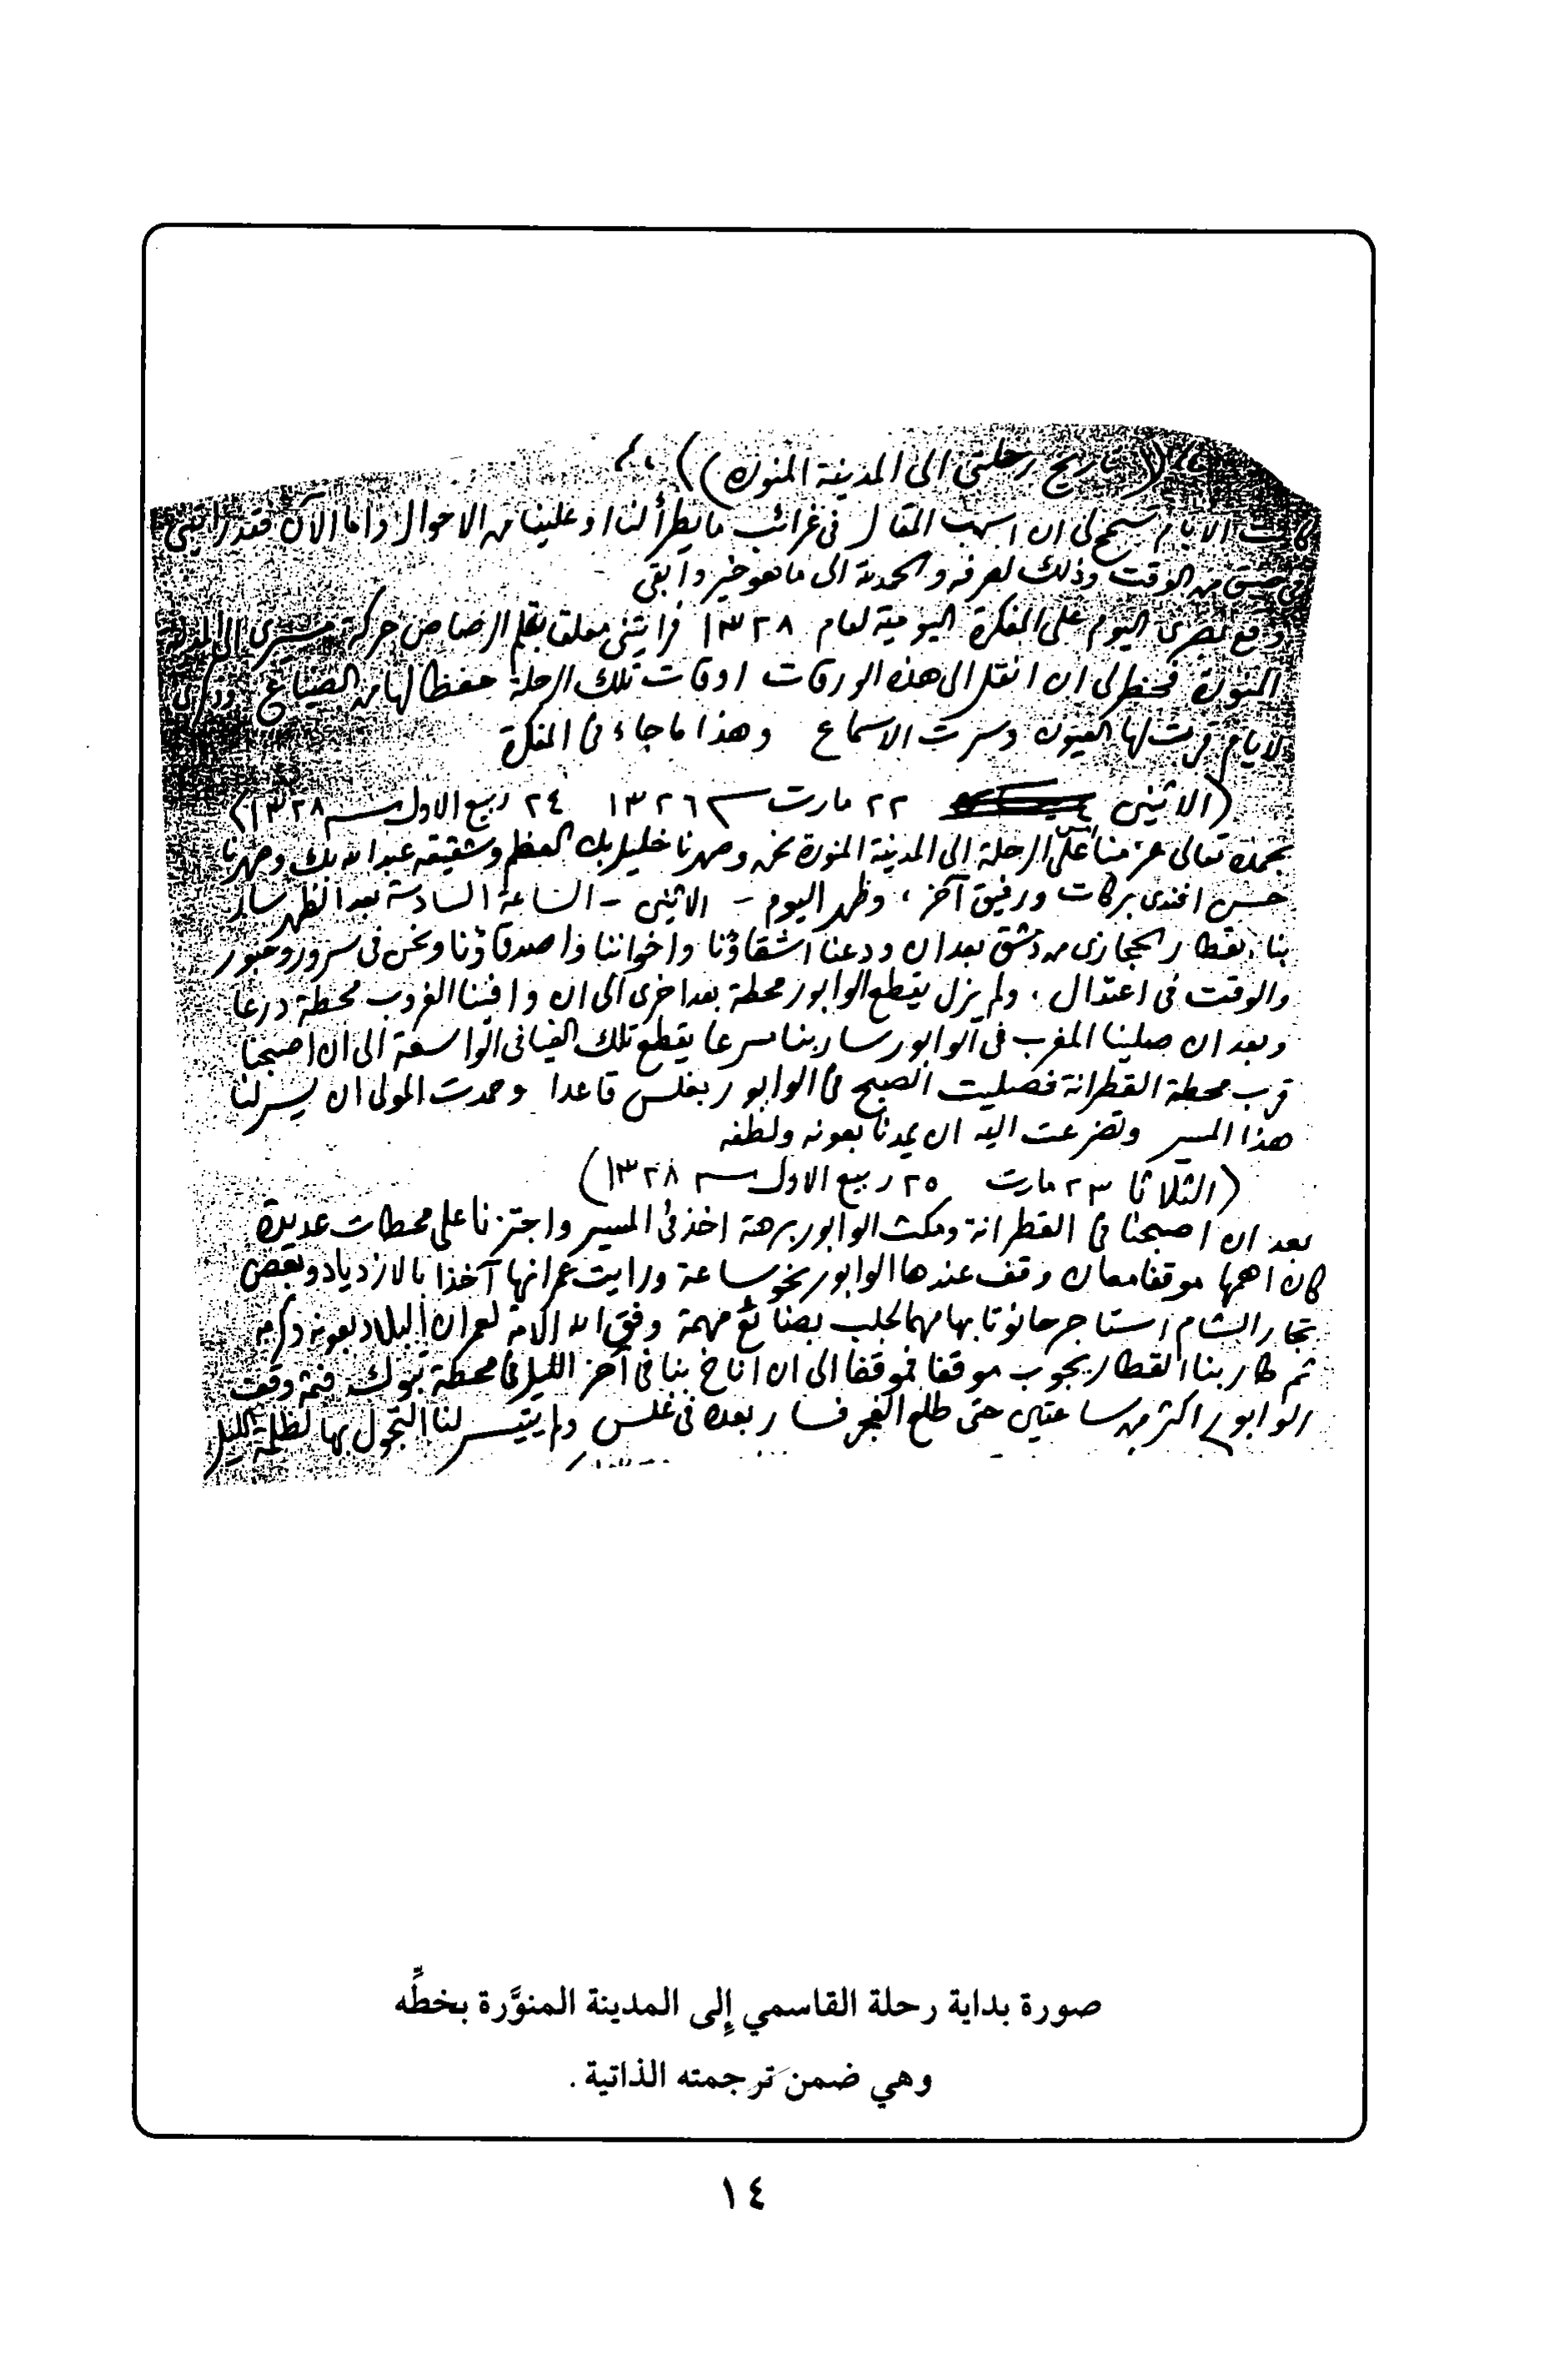 ((تاريخ رحلتي الى المدينة المنورة))
كانت الايام تسمح لي ان اسهب المقال في غرائب ما يطرأ لنا او علينا من الاحوال واما الآن فقد رأيتني
في ضيق من الوقت وذلك لصرفه والحمد لله الى ما هو خير وابقى
وقع بصري اليوم على المفكرة اليومية لعام ١٣٢٨ فرايتني معلقا بقلم الرصاص حركة مسيري الى المدينة
المنورة فخطر لي ان انقل الى هذه الورقات اوقات تلك الرحلة حفظا لها من الضياع وذكرى
لايام قرت لها العيون وسرت الاسماع وهذا ما جاء في المفكرة
(الاثنين ٢٢ مارت سنة ١٣٢٦ ٢٤ ربيع الاول سنة ١٣٢٨)
بحمده تعالى عزمنا على الرحلة الى المدينة المنورة نحن وصهرنا خليل بك العظم وشقيقه عبد الله بك وصهرنا
حسن افندي بركات ورفيق آخر، وظهر اليوم - الاثنين - الساعة السادسة بعد الظهر سار
بنا القطار الحجازي من دمشق بعد ان ودعنا اشقاؤنا واخواننا واصدقاؤنا ونحن في سرور وحبور
والوقت في اعتدال، ولم يزل يقطع الوابور محطة بعد اخرى الى ان وافينا الغروب محطة درعا
وبعد ان صلينا المغرب في الوابور سار بنا مسرعا يقطع تلك الفيافي الواسعة الى ان اصبحنا
قرب محطة القطرانة فصليت الصبح في الوابور بغلس قاعدا وحمدت المولى ان يسر لنا
هذا المسير وتضرعت اليه ان يمدنا بعونه ولطفه
(الثلاثا ٢٣ مارت ٢٥ ربيع الاول سنة ١٣٢٨)
بعد ان اصبحنا في القطرانة ومكث الوابور برهة اخذ في المسير واجتزنا على محطات عديدة
كان اهمها موقفا معان وقف عندها الوابور نحو ساعة ورايت عمرانها آخذا بالازدياد وبعض
تجار الشام استاجر حانوتا بها مهما لجلب بضائع مهمة وفق الله الامة لعمران البلاد بعونه وكرمه
ثم طار بنا القطار يجوب موقفا فموقفا الى ان اناخ بنا في آخر الليل في محطة تبوك فثمة وقف
الوابور اكثر من ساعتين حتى طلع الفجر فسار بعده في غلس ولم يتيسر لنا التجول بها لظلمة الليل
صورة بداية رحلة القاسمي إلى المدينة المنوَّرة بخطِّه
وهي ضمن ترجمته الذاتية.
١٤